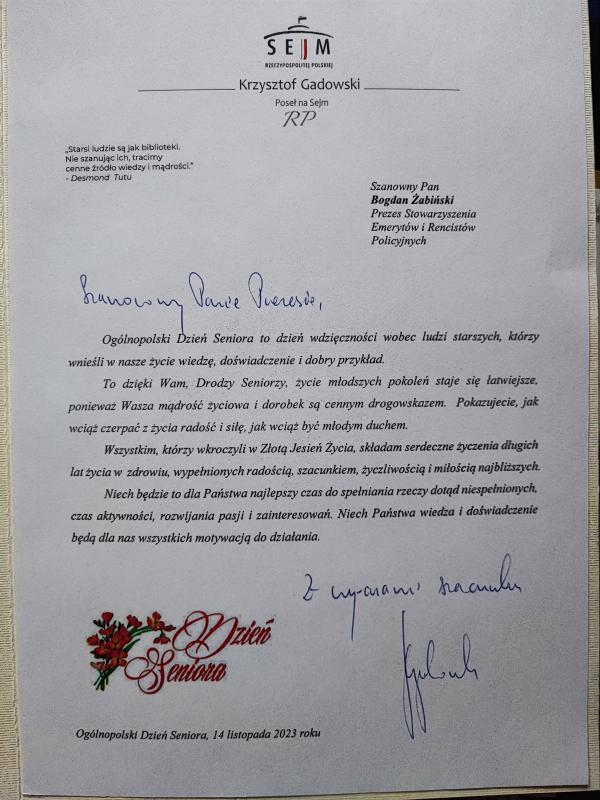 SEJM
RZECZYPOSPOLITEJ POLSKIEJ
Krzysztof Gadowski
Poseł na Sejm
RP
„Starsi ludzie są jak biblioteki.
Nie szanując ich, tracimy
cenne źródło wiedzy i mądrości."
- Desmond Tutu
Szanowny Pan
Bogdan Żabiński
Prezes Stowarzyszenia
Emerytów i Rencistów
Policyjnych
Szanowny Panie Prezesie,
Ogólnopolski Dzień Seniora to dzień wdzięczności wobec ludzi starszych, którzy
wnieśli w nasze życie wiedzę, doświadczenie i dobry przykład.
To dzięki Wam, Drodzy Seniorzy, życie młodszych pokoleń staje się łatwiejsze,
ponieważ Wasza mądrość życiowa i dorobek są cennym drogowskazem. Pokazujecie, jak
wciąż czerpać z życia radość i siłę, jak wciąż być młodym duchem.
Wszystkim, którzy wkroczyli w Złotą Jesień Życia, składam serdeczne życzenia długich
lat życia w zdrowiu, wypełnionych radością, szacunkiem, życzliwością i miłością najbliższych.
Niech będzie to dla Państwa najlepszy czas do spełniania rzeczy dotąd niespełnionych,
czas aktywności, rozwijania pasji i zainteresowań. Niech Państwa wiedza i doświadczenie
będą dla nas wszystkich motywacją do działania.
Z wyrazami szacunku
Dzień
Seniora
Ogólnopolski Dzień Seniora, 14 listopada 2023 roku